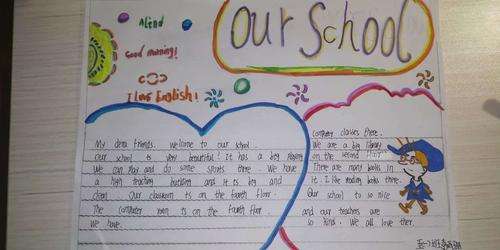 Our School
Afend
Good maning!
I Love English!
My dera friends. welcome to our school.
Our school is very beautiful! It has a big playing
We can play and do some sports there We have
a high teaching building and it is big and
clean Our classroom is on the fourth floor.
The computer room is on the fourth floor.
We have
computer classes there.
We are a big library
on the second floor
There are many books in
it. I like reading books there.
Our school is so nice
and our teachers are
so kind. We all love ther.